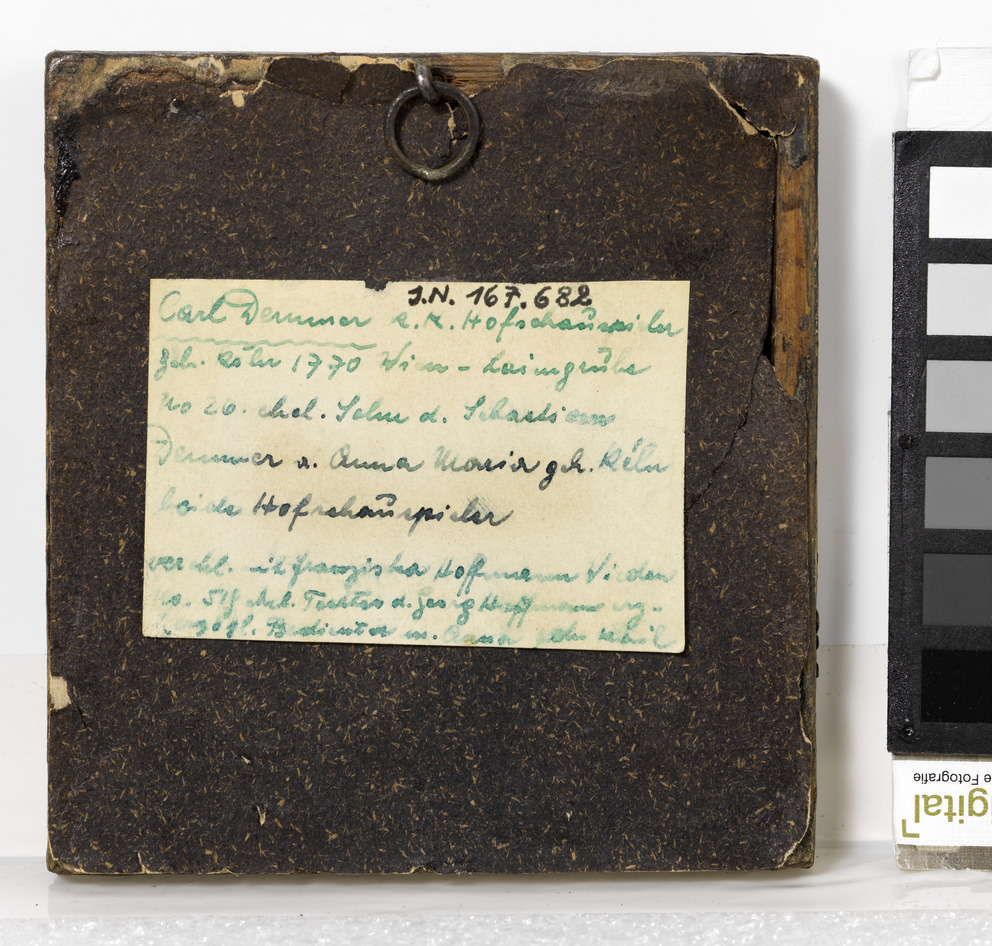 J.N. 167.682
Carl Demmer k.k. Hofschauspieler
geb. Köln 1770 Wien - Laimgrube
No 26. ehel. Sohn d. Sebastian
Demmer u. Anna Maria geb. Köln
beide Hofschauspieler
verehl. mit Franziska Hoffmann Wieden
No. 518 ehel. Tochter d. Georg Hoffmann erz-
herzogl. Bedienter u. Anna geb.
gital
e Fotografie